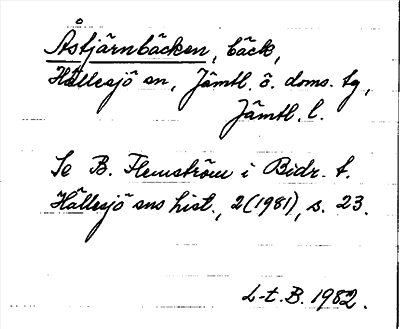 Åstjärnbäcken, bäck,
Hällesjö sn, Jämtl. ö. doms. tg,
Jämtl. l.
Se B. Flemström i Bidr. t.
Hällesjö sns hist., 2(1981), s. 23.
L-t. B. 1982.